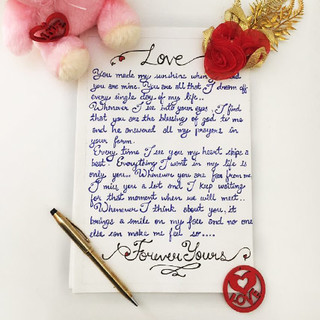 Love
You made my sunshine when I
you are mine. You are all that I dream off
every single day of my life...
Whenever I see into your eyes, I find
that you are the blessings of god to me
and he answered all my prayers in
your form.
Every time I see you my heart skips a
beat. Everything I want in my life is
only you... Whenever you are far from me
I miss you a lot and I keep waiting
for that moment when we will meet...
Whenever I think about you, it
brings a smile on my face and no one
else can make me feel so....
Forever Yours
LOVE
LOVE